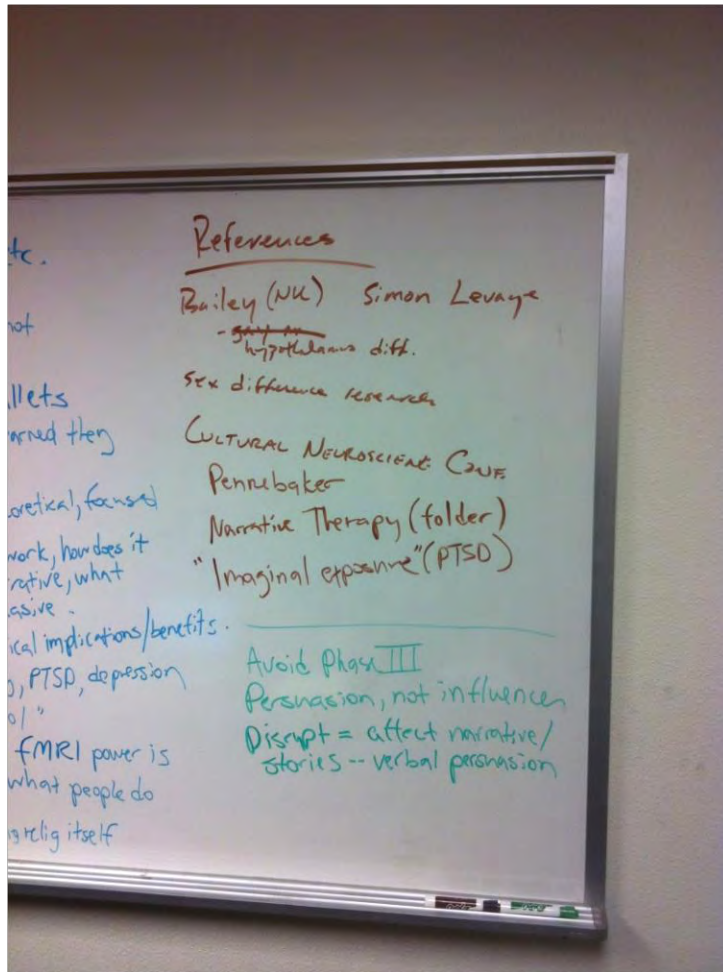 etc.
not
llets
arned they
oretical, focused
work, how does it
rative, what
asive.
ical implications/benefits.
), PTSD, depression
ol"
fMRI power is
what people do
relig itself
References
Bailey (NU) Simon Levaye
- hypothalamus diff.
sex difference research
CULTURAL NEUROSCIENCE CONF.
Pennebaker
Narrative Therapy (folder)
"Imaginal exposure" (PTSD)
Avoid Phase III
Persuasion, not influence
Disrupt = affect narrative/
stories -- verbal persuasion